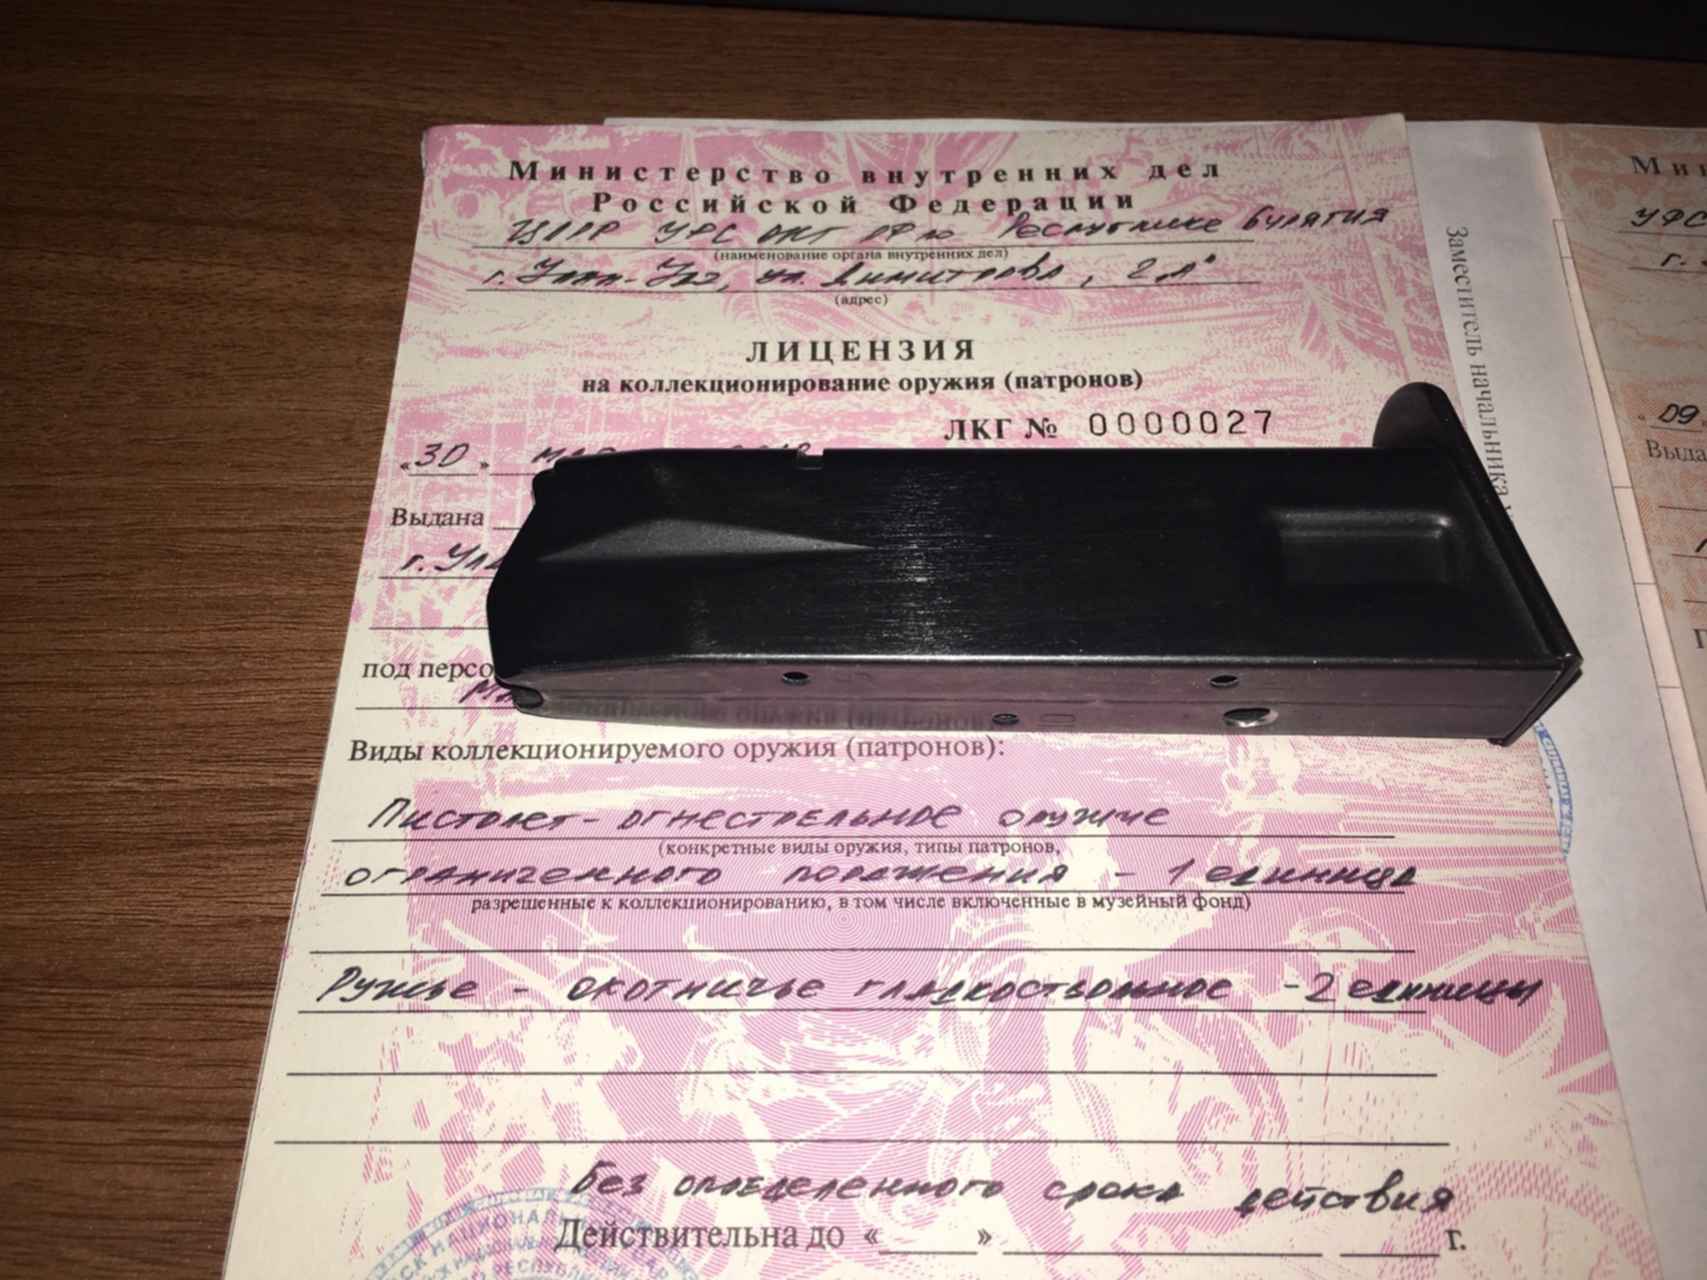 Министерство внутренних дел
Российской Федерации
ЦЛРР УФС ВНГ РФ по Республике Бурятия
(наименование органа внутренних дел)
г. Улан-Удэ, ул. Димитрова, 2 "А"
(адрес)
ЛИЦЕНЗИЯ
на коллекционирование оружия (патронов)
ЛКГ № 0000027
«30»
Выдана
г. Ула
под персо
Виды коллекционируемого оружия (патронов):
Пистолет - огнестрельное оружие
(конкретные виды оружия, типы патронов,
ограниченного поражения - 1 единица
разрешенные к коллекционированию, в том числе включенные в музейный фонд)
Ружье - охотничье гладкоствольное - 2 единицы
Без определенного срока действия
Действительна до « » г.
Заместитель начальника
Ми
УФС
г.
09
Выда